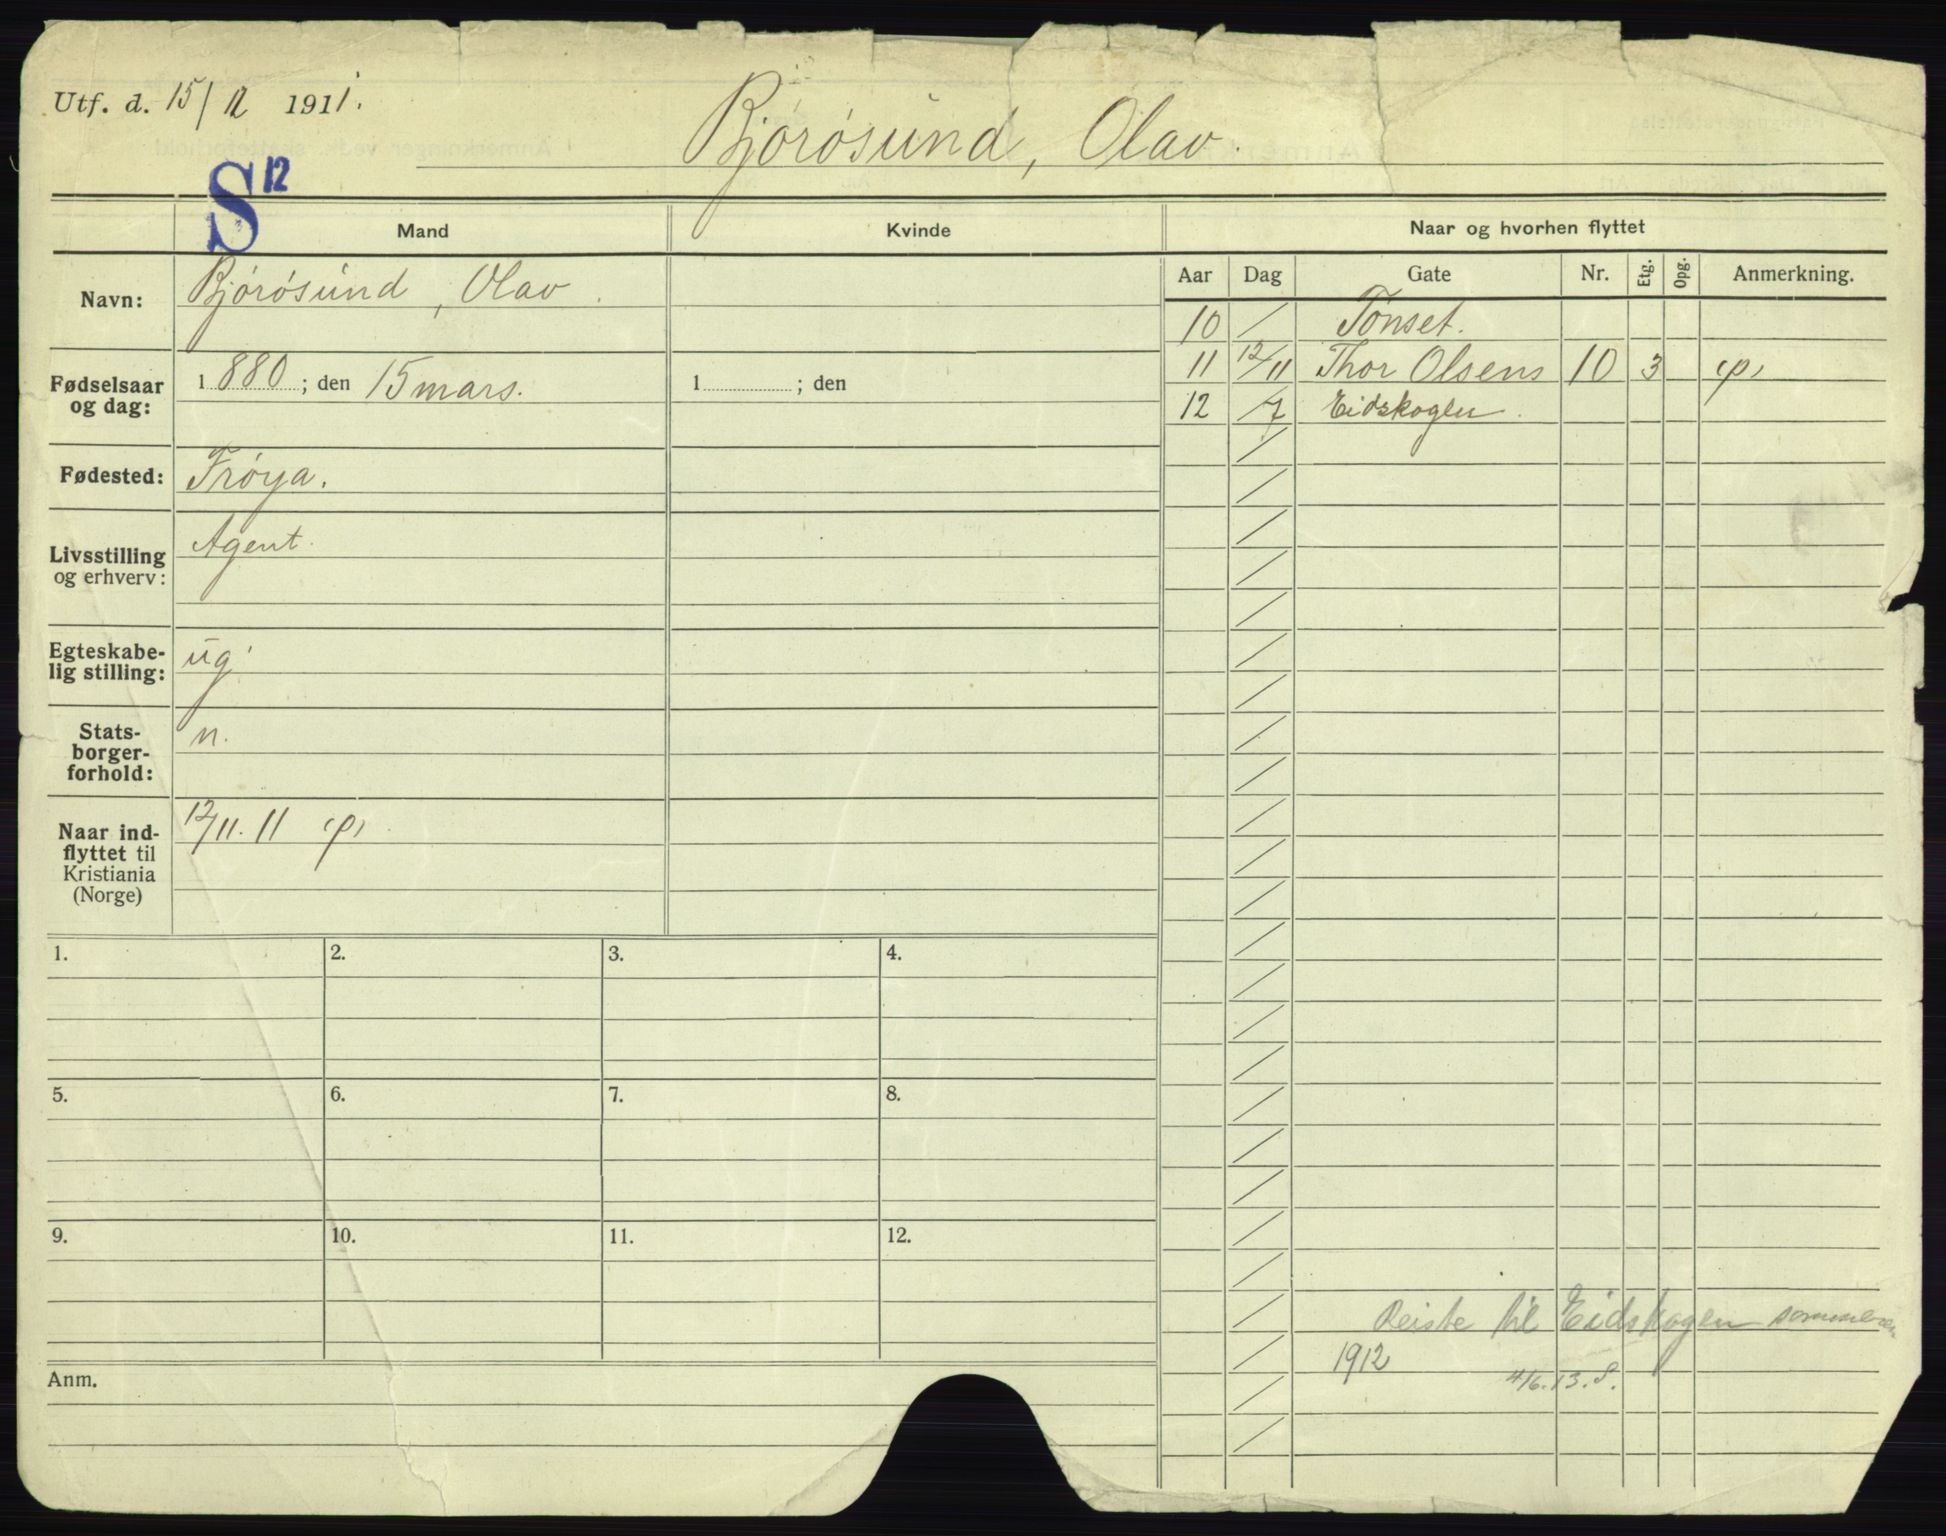 Utf. d. 15/12 1911.
Bjørøsund, Olav.
S 12
Mand
Kvinde
Naar og hvorhen flyttet
Aar Dag Gate Nr. Etg. Opg. Anmerkning.
Navn: Bjørøsund, Olav.
Fødselsaar og dag: 1880; den 15 mars.
1 ; den
Fødested: Frøya.
Livsstilling og erhverv: Agent.
Egteskabelig stilling: ug.
Statsborgerforhold: n.
Naar indflyttet til Kristiania (Norge) 12/11. 11
10 / Tønset.
11 12/11 Thor Olsens 10 3
12 /7 Eidskogen.
1. 2. 3. 4.
5. 6. 7. 8.
9. 10. 11. 12.
Anm.
Reiste til Eidskogen sommeren
1912
4/6.13. S.